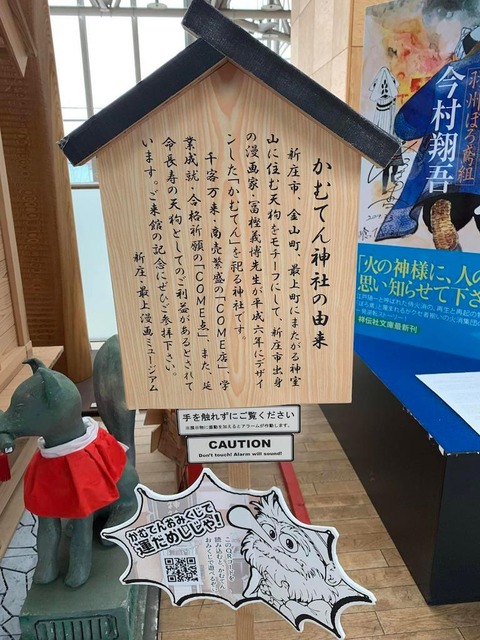 かむてん神社の由来
新庄市、金山町、最上町にまたがる神室
山に住む天狗をモチーフにして、新庄市出身
の漫画家・冨樫義博先生が平成六年にデザイ
ンした「かむてん」を祀る神社です。
千客万来・商売繁盛の「COME店」、学
業成就・合格祈願の「COME点」、また、延
命長寿の天狗としてのご利益があるとされて
います。ご来館の記念にぜひご参拝下さい。
新庄・最上漫画ミュージアム
手を触れずにご覧ください
※展示物に振動を加えるとアラームが作動します。
CAUTION
Don't touch! Alarm will sound!
かむてんおみくじで
運だめしじゃ!
このQRコードを
読み込むと、かむてん
おみくじで遊べるぞい
羽州ぼろ鳶組
今村翔吾
「火の神様に、人の
思い知らせて下さ
祥伝社文庫最新刊